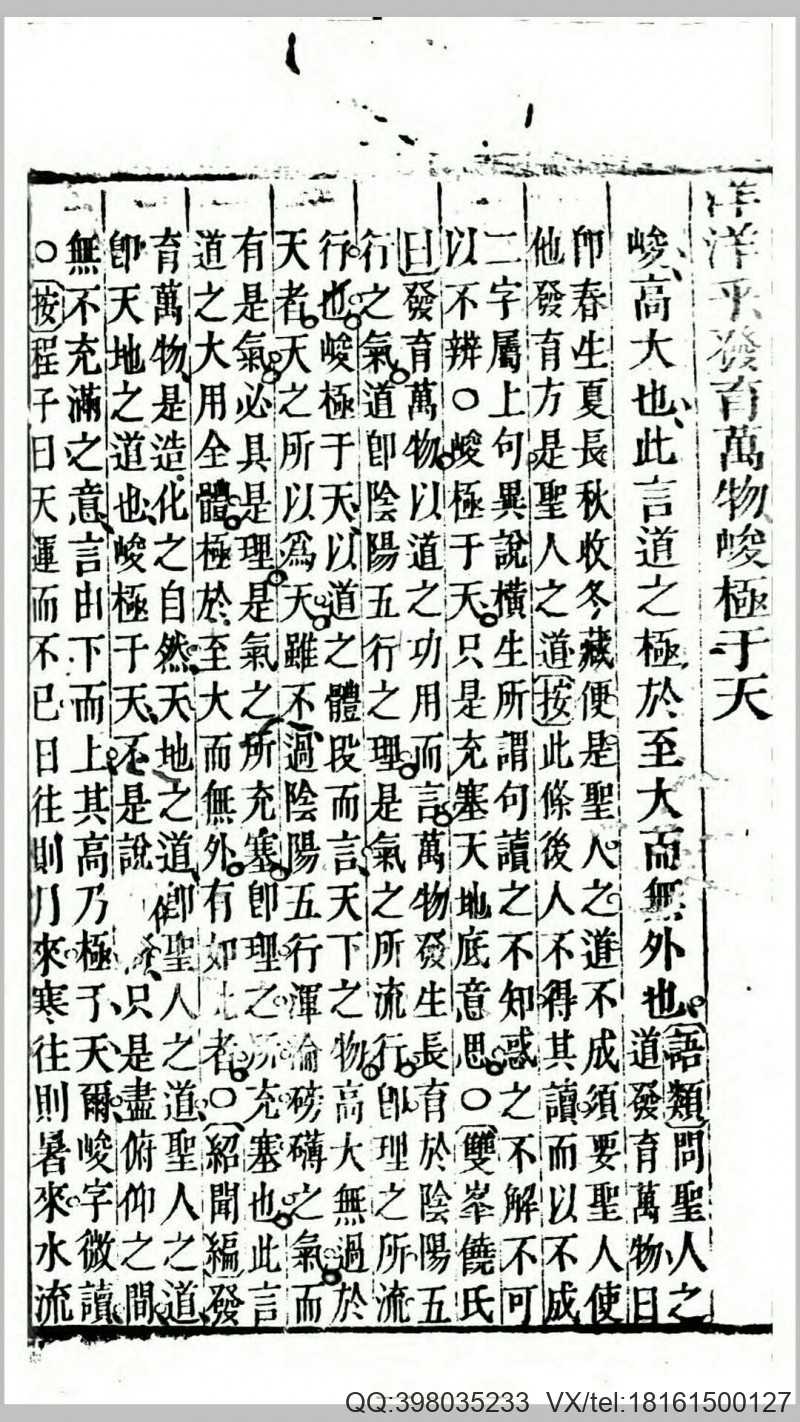 洋洋乎發育萬物峻極于天
峻高大也此言道之極於至大而無外也
語類問聖人之
道發育萬物曰
卽春生夏長秋收冬藏便是聖人之道不成須要聖人使
他發育方是聖人之道按此條後人不得其讀而以不成
二字屬上句異說橫生所謂句讀之不知惑之不解不可
以不辨○峻極于天只是充塞天地底意思○雙峯饒氏
曰發育萬物以道之功用而言萬物發生長育於陰陽五
行之氣道卽陰陽五行之理是氣之所流行卽理之所流
行也峻極于天以道之體段而言天下之物高大無過於
天者天之所以爲天雖不過陰陽五行渾淪磅礴之氣而
有是氣必具是理是氣之所充塞卽理之所充塞也此言
道之大用全體極於至大而無外有如此者○紹聞編發
育萬物是造化之自然天地之道卽聖人之道聖人之道
卽天地之道也峻極于天不是說只是盡俯仰之間
無不充滿之意言由下而上其高乃極于天爾峻字微讀
○按程子曰天運而不已日往則月來寒往則暑來水流
QQ:398035233 VX/tel:18161500127